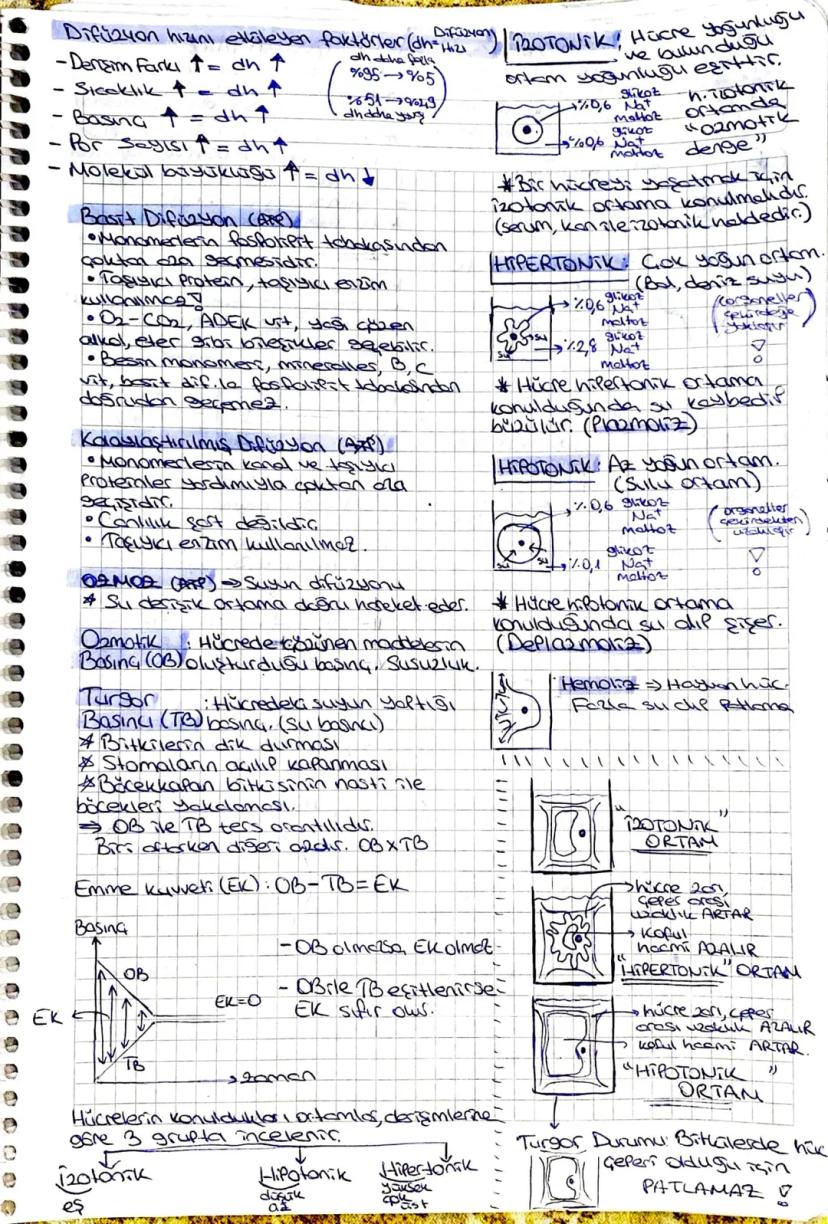 Difüzyon hızını etkileyen faktörler (dh= Difüzyon Hızı)
- Derişim Farkı ↑ = dh ↑
- Sıcaklık ↑ = dh ↑
- Basınç ↑ = dh ↑
- Por Sayısı ↑ = dh ↑
- Molekül büyüklüğü ↑ = dh ↓
dh daha fazla
%95 → %5
%51 → %49
dh daha yavaş
Basit Difüzyon (ATP)
• Monomerlerin fosfolipit tabakasından
çoktan aza geçmesidir.
• Taşıyıcı protein, taşıyıcı enzim
kullanılmaz!
• O2-CO2, ADEK vit, yağı çözen
alkol, eter gibi bileşikler geçebilir.
• Besin monomeri, mineraller, B, C
vit, basit dif. la fosfolipit tabakasından
doğrudan geçemez.
Kolaylaştırılmış Difüzyon (ATP)
• Monomerlerin kanal ve taşıyıcı
proteinler yardımıyla çoktan aza
geçişidir.
• Canlılık şart değildir.
• Taşıyıcı enzim kullanılmaz.
OZMOZ (ATP) ⇒ Suyun difüzyonu
* Su derişik ortama doğru hareket eder.
Ozmotik : Hücrede çözünen maddelerin
Basınç (OB) oluşturduğu basınç. Susuzluk.
Turgor : Hücredeki suyun yaptığı
Basıncı (TB) basınç. (su basıncı)
* Bitkilerin dik durması
* Stomaların açılıp kapanması
* Böcekkapan bitkisinin nasti ile
böcekleri yakalaması.
⇒ OB ile TB ters orantılıdır.
Biri artarken diğeri azdır. OB x TB
Emme kuvveti (EK) : OB - TB = EK
Basınç
OB
EK
TB
EK=0
→ zaman
- OB olmazsa EK olmaz
- OB ile TB eşitlenirse
EK sıfır olur.
Hücrelerin konuldukları ortamlar, derişimlerine
göre 3 grupta incelenir.
İzotonik
eş
Hipotonik
düşük
az
Hipertonik
yüksek
çok
üst
İZOTONİK : Hücre yoğunluğu
ve bulunduğu
ortam yoğunluğu eşittir.
%0,6 glikoz
Na+
maltoz
%0,6 glikoz
Na+
maltoz
h. izotonik
ortamda
"ozmotik
denge"
* Bir hücreyi yaşatmak için
izotonik ortama konulmalıdır.
(serum, kan ile izotonik haldedir.)
HİPERTONİK : Çok yoğun ortam.
(Bal, deniz suyu)
%0,6 glikoz
Na+
maltoz
su
su
%2,8 glikoz
Na+
maltoz
(organeller
çekirdeğe
yaklaşır)
!
* Hücre hipertonik ortama
konulduğunda su kaybedip
büzülür. (Plazmoliz)
HİPOTONİK : Az yoğun ortam.
(Sulu ortam)
%0,6 glikoz
Na+
maltoz
su
su
%0,1 glikoz
Na+
maltoz
(organeller
çekirdekten
uzaklaşır)
!
* Hücre hipotonik ortama
konulduğunda su alıp şişer.
(Deplazmoliz)
Hemoliz ⇒ Hayvan hüc.
Fazla su alıp patlama
"İZOTONİK"
ORTAM
hücre zarı
çeper arası
uzaklık ARTAR
koful
hacmi AZALIR
"HİPERTONİK" ORTAM
hücre zarı, çeper
arası uzaklık AZALIR
koful hacmi ARTAR.
"HİPOTONİK"
ORTAM
Turgor Durumu: Bitkilerde hüc
çeperi olduğu için
PATLAMAZ !